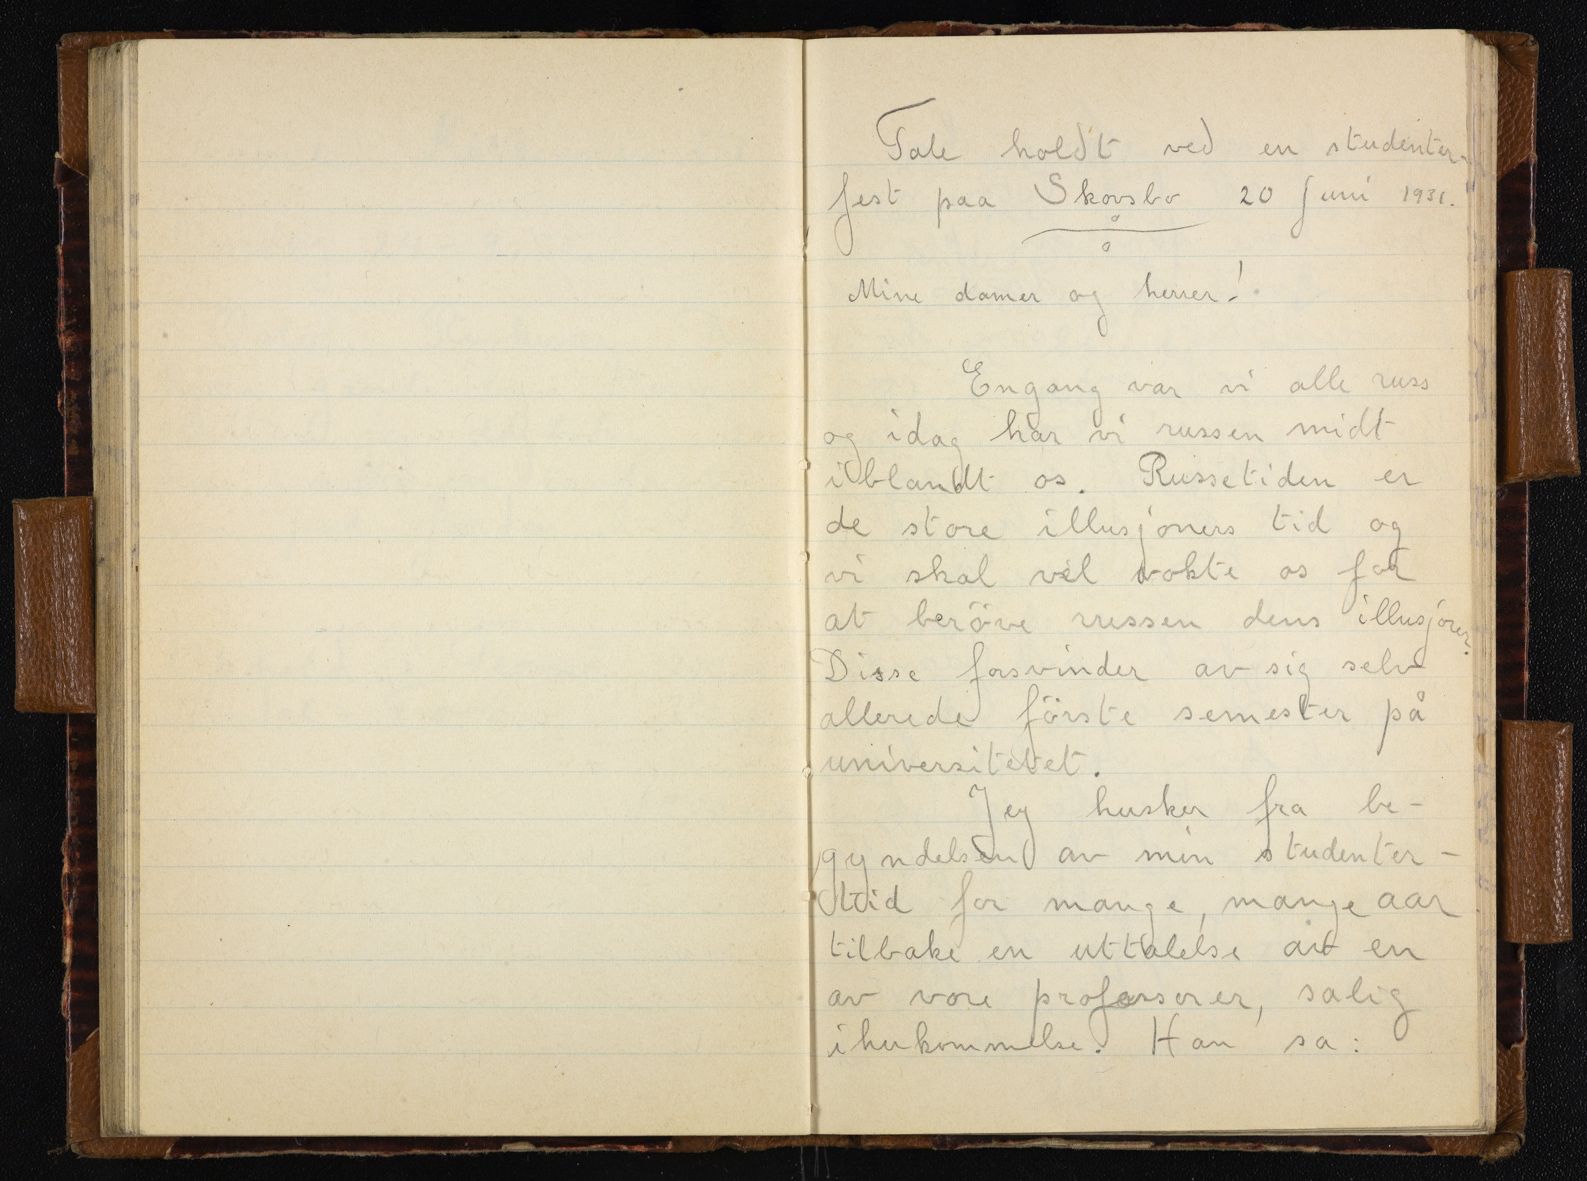 Tale holdt ved en studenter-
fest paa Skovsbo 20 Juni 1931.
Mine damer og herrer!
Engang var vi alle russ
og idag har vi russen midt
iblandt os. Russetiden er
de store illusjoners tid og
vi skal vel vokte os for
at beröve russen dens illusjoner.
Disse forsvinder av sig selv
allerede förste semester på
universitetet.
Jeg husker fra be-
gyndelsen av min studenter-
tid for mange, mange aar
tilbake en uttalelse av en
av vore professorer, salig
ihukommelse. Han sa: